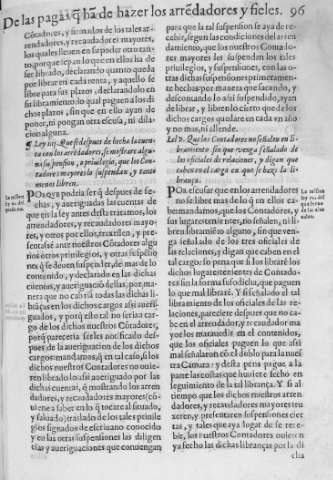 De las pagas q̃ hã de hazer los arrẽdadores y fieles. 96
Cõtadores, y firmados de los tales ar-
rendadores, y recaudadores mayores,
los quales lleuen en su poder otro tan-
to, porque sepan lo que en ellos ha de
ser librado, declarando quanto queda
por librar en cada renta, y aquello se
libre para sus plazos, declarando lo en
su libramiento: lo qual paguen a los di-
chos plazos, sin que en ello ayan de
poner, ni pongan otra escusa, ni dila-
cion alguna.
¶ Ley iiij. Que si despues de hecha la cuen-
ta con los arrendadores, se mostrare algu-
na suspension, o priuilegio, que los Con-
tadores mayores la suspendan, y tanto
menos libren.
POrque podria ser q̃ despues de fe-
chas, y aueriguadas las cuentas de
que en la ley antes desta tratamos, los
arrendadores, y recaudadores mayo-
res, y otros por ellos, traxessen, y pre-
sentassen ante nuestros Cõtadores algu
nos otros priuilegios, y otras suspensio
nes q̃ se deuen suspender, de mas de lo
contenido, y declarado en las dichas
cuentas, y aueriguaciones dellas, por ma-
nera que no cabria todas las dichas li-
brãças en los dichos cargos assi aueri-
guados, y porq̃ esto tal no seria a car-
go de los dichos nuestros Cõtadores,
porq̃ pareceria ser les notificado des-
pues de la aueriguacion de los dichos
cargos: mandamos, q̃ en tal caso, si los
dichos nuestros Contadores no ouie-
ren librado lo assi aueriguado por las
dichas cuentas, q̃ mostrando los arren
dadores, y recaudadores mayores (cõ-
uiene a saber en lo q̃ tocare al situado,
y saluado) traslados de los tales priuile
gios signados de escriuano conocido
y en las otras suspensiones las diligen
cias y aueriguaciones que conuengan
para que la tal suspension se aya de re-
cebir, segun las condiciones del arren-
damiento, que los nuestros Contado-
res mayores les suspendan los tales
priuilegios, y suspensiones, con las o-
tras dichas suspensiones primeramen-
te hechas por nuestro mandado, y des-
contando lo assi suspendido, ayan
de librar, y libren lo cierto que de los
dichos cargos quedare en cada vn año
y no mas, ni allende.
Ley v. Que los Contadores no señalen ni li-
bramiento sin que venga señalado de
los oficiales de relaciones, y digan que
caben en tal cargo en que se haze la li-
brança.
POr escusar que en los arrendadores
no se libre mas de lo q̃ en ellos ca-
be: mandamos, que los Contadores, y
sus lugartenientes, no señalen, ni li-
bren libramiẽto alguno, sin que ven-
ga señalado de los tres oficiales de
las relaciones, y digan que caben en el
tal cargo: so pena que si los librarẽ los
dichos lugartenientes de Contado-
res sin la forma susodicha, que paguen
lo que mal libraré. Y si señalado el tal
libramiento de los oficiales de las re-
laciones, pareciere despues que no ca-
be en el arrendador, y recaudador ma
yor los marauedis en el contenidos,
que los oficiales paguen lo que assi
mal señalaron cõ el doblo para la nues
tra Camara: y desta pena pague, a la
parte las costas que huuiere fecho en
seguimiento de la tal librança. Y si al
tiempo que los dichos nuestros arren
dadores, y recaudadores mayores tru
xeren, y presentaren suspensiones cier
tas, y tales que aya lugar de se rece-
bir, los nuestros Contadores ouieren
ya fecho las dichas libranças por la di
cha